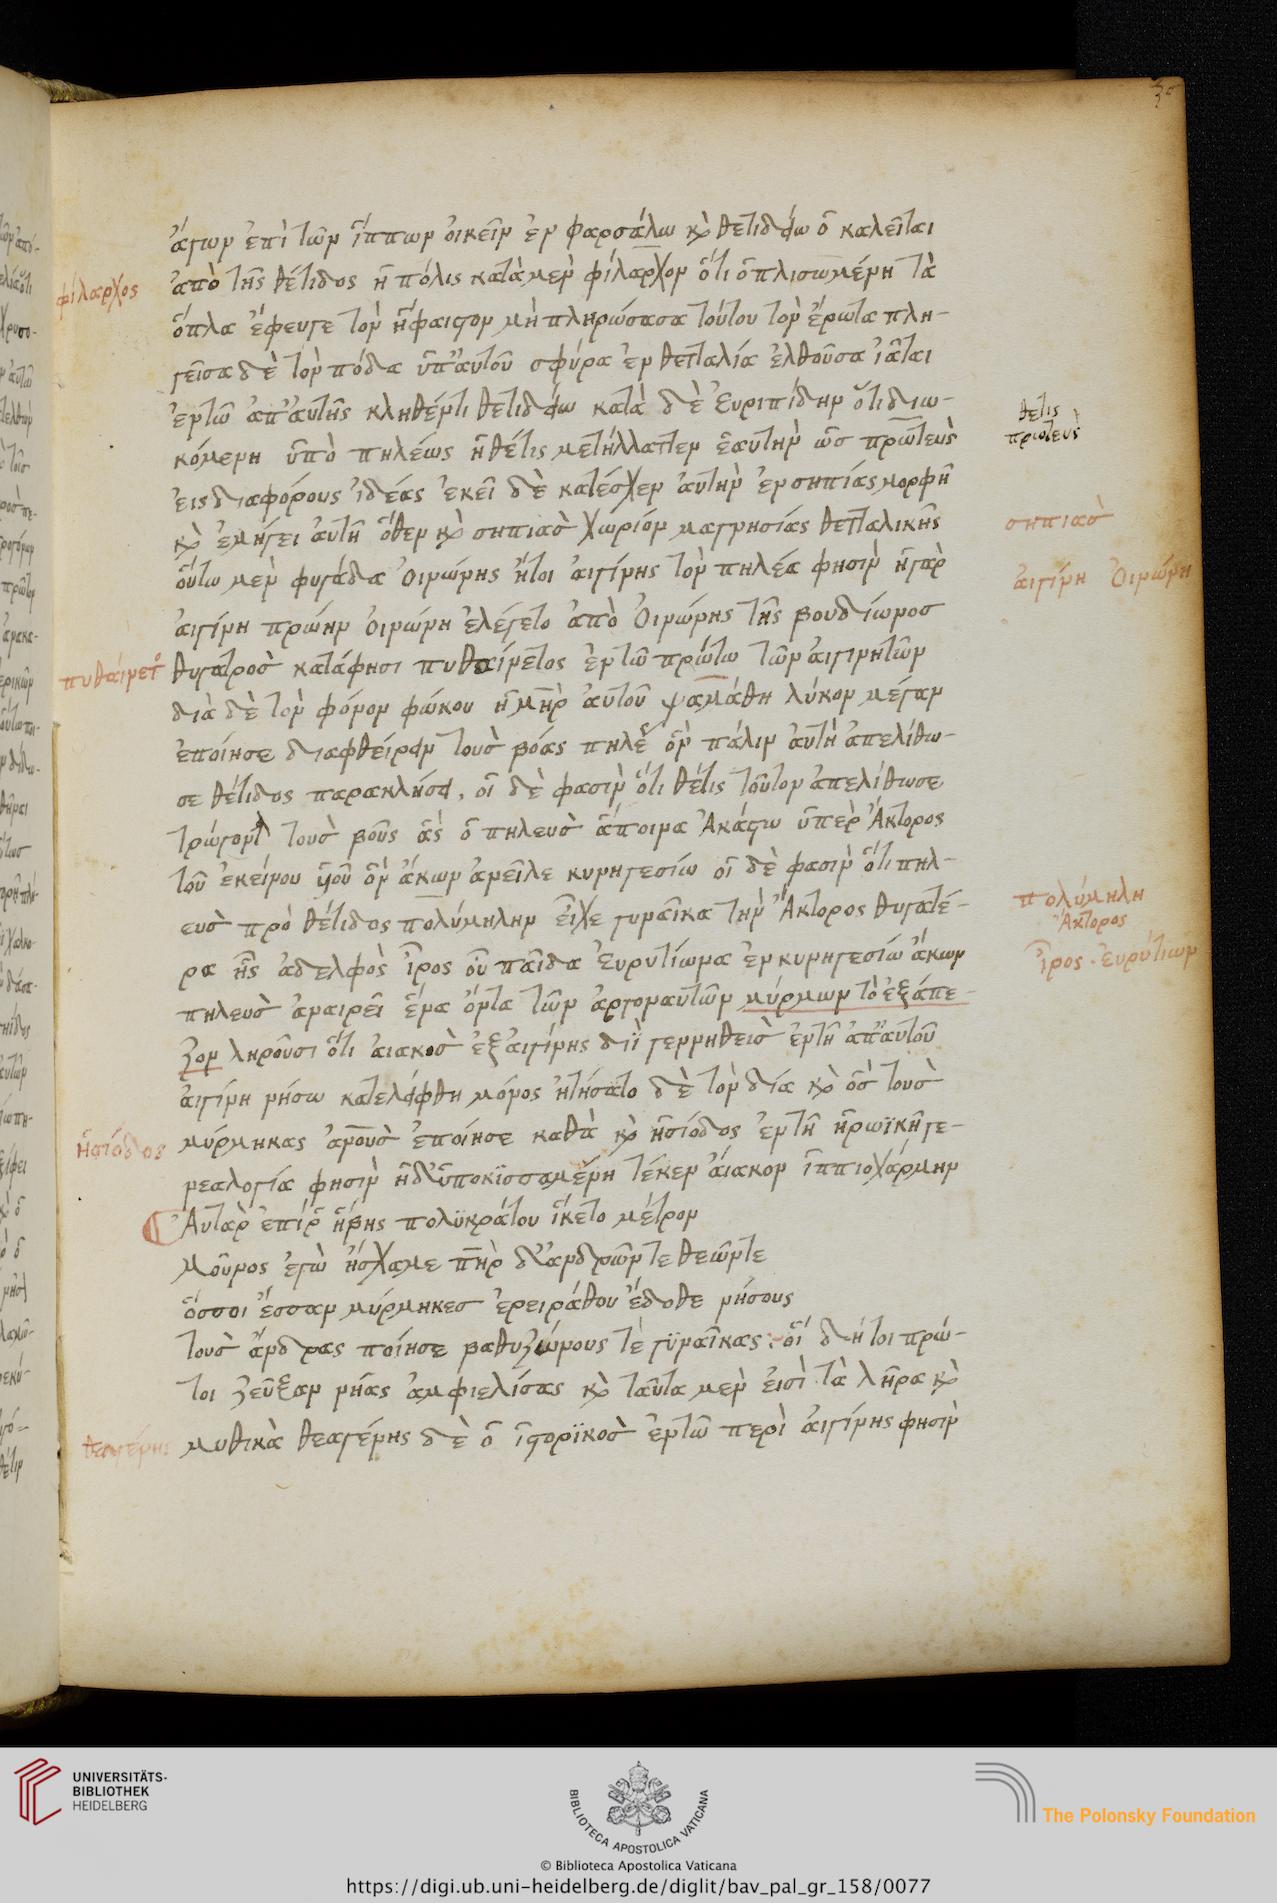 ἄγων ἐπὶ τῶν ἵππων οἰκεῖν ἐν φαρσάλω κ θετιδείω ὃ καλεῖται
φίλαρχος
ἀπὸ τῆς θέτιδος ἡ πόλις κατὰ μὲν φίλαρχον ὅτι ὁπλισωμένη τὰ
ὅπλα ἔφευγε τὸν ἥφαιστον μὴ πληρώσασα τούτου τὸν ἔρωτα πλη-
γεῖσα δὲ τὸν πόδα ὑπ' αὐτοῦ σφύρα ἐν θετταλία ἐλθοῦσα ἰᾶται
ἐν τῶ ἀπ' αὐτῆς κληθέντι θετιδείω κατὰ δὲ Εὐριπίδην ὅτι διω-
θέτις
πρωτεὺς
κόμενη ὑπὸ πηλέως ἡ θέτις μετήλλαττεν ἑαυτὴν ὡς πρωτεὺς
εἰς διαφόρους ἰδέας ἐκεῖ δὲ κατέσχεν αὐτὴν ἐν σηπίας μορφῆ
κ ἐμίγει αὐτῆ ὅθεν κ σηπιὰς χωρίον μαγνησίας θετταλικῆς
σηπιὰς
οὕτω μὲν φυγάδα Οἰνώνης ἤτοι αἰγίνης τὸν πηλέα φησὶν ἡ γὰρ
αἰγίνη Οἰνώνη
αἰγίνη πρώην Οἰνώνη ἐλέγετο ἀπὸ Οἰνώνης τῆς βουδίωνος
πυθαίνετος
θυγατρὸς κατά φησι πυθαίνετος ἐν τῶ πρώτω τῶν αἰγινητῶν
διὰ δὲ τὸν φόνον φώκου ἡ μηρ αὐτοῦ ψαμάθη λύκον μέγαν
ἐποίησε διαφθείρειν τοὺς βόας πηλέ ὃν πάλιν αὐτὴ ἀπελίθω-
σε θέτιδος παρακλήσει. οἱ δὲ φασὶν ὅτι θέτις τοῦτον ἀπελίθωσε
τρώγοντα τοὺς βοῦς ἃς ὁ πηλεὺς ἄποινα Ἀκάστω ὑπὲρ Ἄκτορος
τοῦ ἐκείνου υἱοῦ ὃν ἄκων ἀνεῖλε κυνηγεσίω οἱ δὲ φασὶν ὅτι πηλ-
ευς πρὸ θέτιδος πολύμηλην εἶχε γυναῖκα τὴν Ἄκτορος θυγατέ-
πολύμηλη
Ἄκτορος
ρα ἧς ἀδελφὸς ἶρος οὗ παῖδα Εὐρυτίωνα ἐν κυνηγεσίω ἄκων
ἶρος. εὐρύτίων
πηλεὺς ἀναιρεῖ ἕνα ὄντα τῶν ἀργοναυτῶν μύρμων τὸ ἐξάπε-
ζον ληροῦσι ὅτι αἰακὸς ἐξ αἰγίνης διῒ γεννηθεὶς ἐν τῆ ἀπ' αὐτοῦ
αἰγίνη νήσω κατελείφθη μόνος ἠτήσατο δὲ τὸν δία κ ὃς τοὺς
ἡσίοδος
μύρμηκας ἀνους ἐποίησε καθὰ κ ἡσίοδος ἐν τῆ ἡρωϊκῆ γε-
νεαλογία φησὶν ἡ δ' ὑποκϊσσαμένη τέκεν αἴακον ἱππιοχάρμην
Αὐτὰρ ἐπίῥ ἥβης πολϋκράτου ἵκετο μέτρον
Μοῦνος ἐγὼ ἤσχαμε πηρ δ' ἀνδρῶν τε θεῶν τε
ὅσσοι ἔσσαν μύρμηκες ἐνειράθου ἔδοθε νήσους
τοὺς ἄνδρας ποίησε βαθυζώνους τὲ γϋναῖκας: οἵ δή τοι πρώ-
τοι ζεῦξαν νῆας ἀμφιελίσας κ ταῦτα μὲν εἰσὶ τὰ λῆρα κ
θεαγένης
μυθικὰ θεαγένης δὲ ὁ ἱστορϊκὸς ἐν τῶ περὶ αἰγίνης φησὶν
UNIVERSITÄTS-
BIBLIOTHEK
HEIDELBERG
BIBLIOTECA APOSTOLICA VATICANA
The Polonsky Foundation
© Biblioteca Apostolica Vaticana
https://digi.ub.uni-heidelberg.de/diglit/bav_pal_gr_158/0077